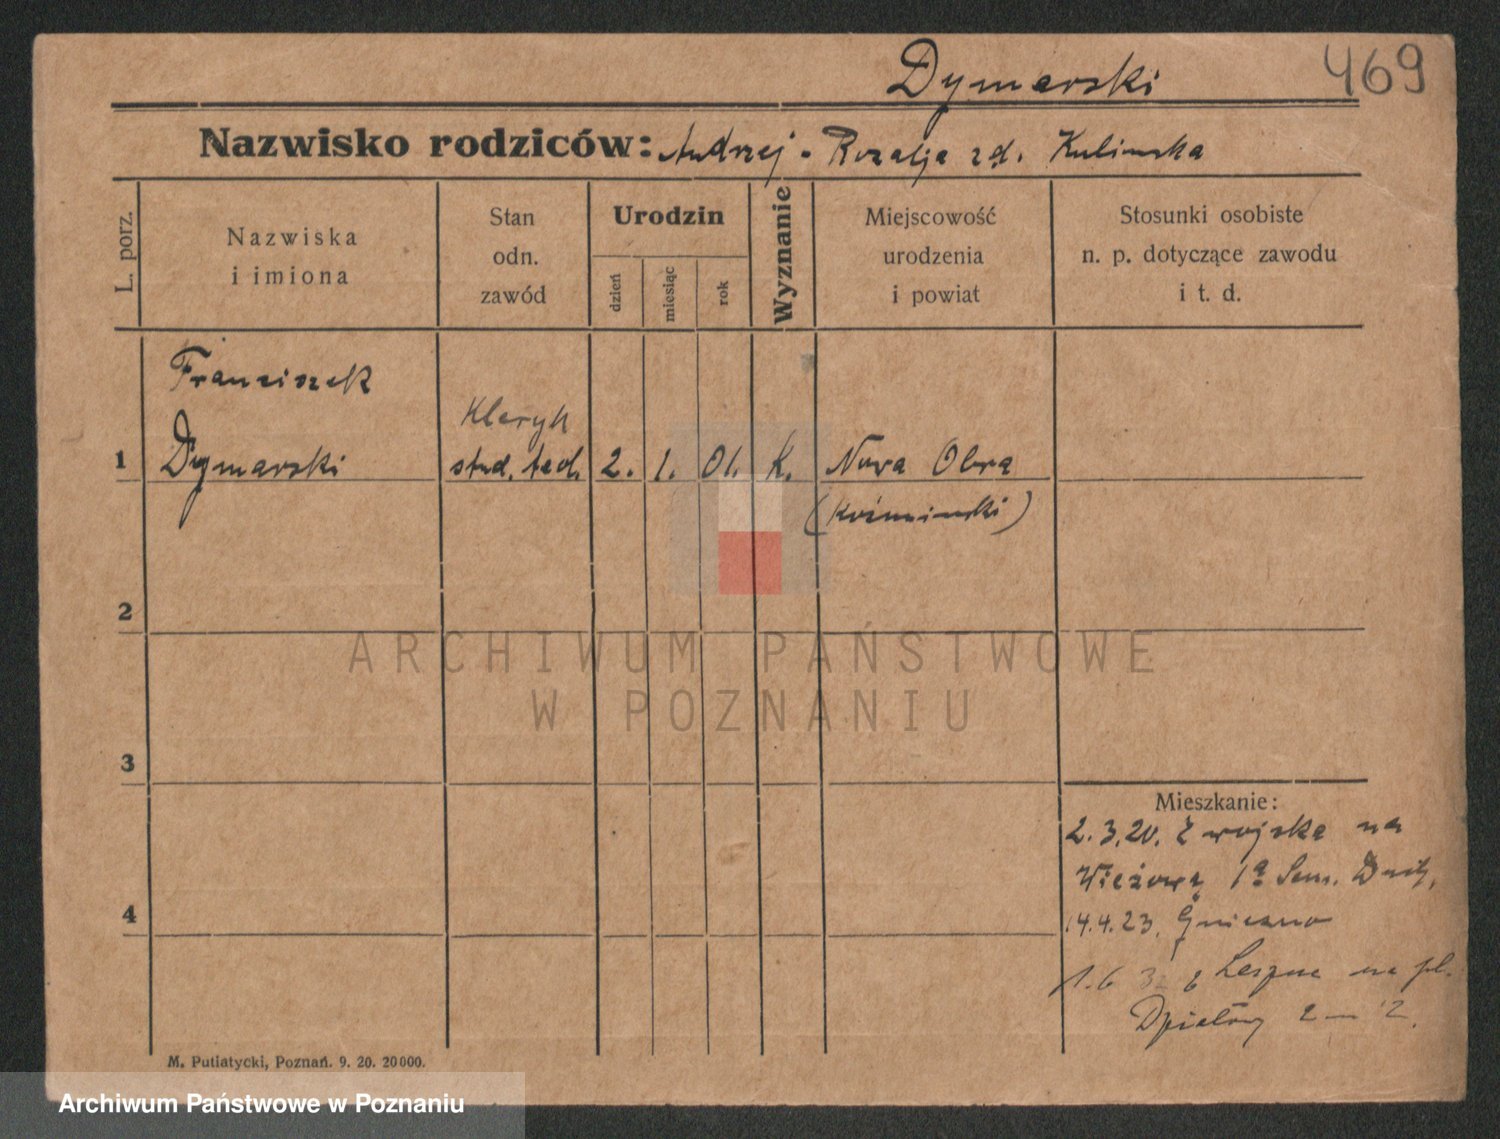 Dymarski 469
Nazwisko rodziców: Andrzej - Rozalja zd. Kulinska
L. porz.
Nazwiska
i imiona
Stan
odn.
zawód
Urodzin
dzień
miesiąc
rok
Wyznanie
Miejscowość
urodzenia
i powiat
Stosunki osobiste
n. p. dotyczące zawodu
i t. d.
Franciszek
Kleryk
1 Dymarski stud. teol. 2. 1. 01. K. Nowa Obra
(Koźmiński)
2
3
4
Mieszkanie:
2.3.20. z wojska na
Wieżową Sem. Duch.
14.4.23. Gniezno
1.6 z Leszna na pl.
M. Putiatycki, Poznań. 9. 20. 20000.
ARCHIWUM PAŃSTWOWE
W POZNANIU
Archiwum Państwowe w Poznaniu